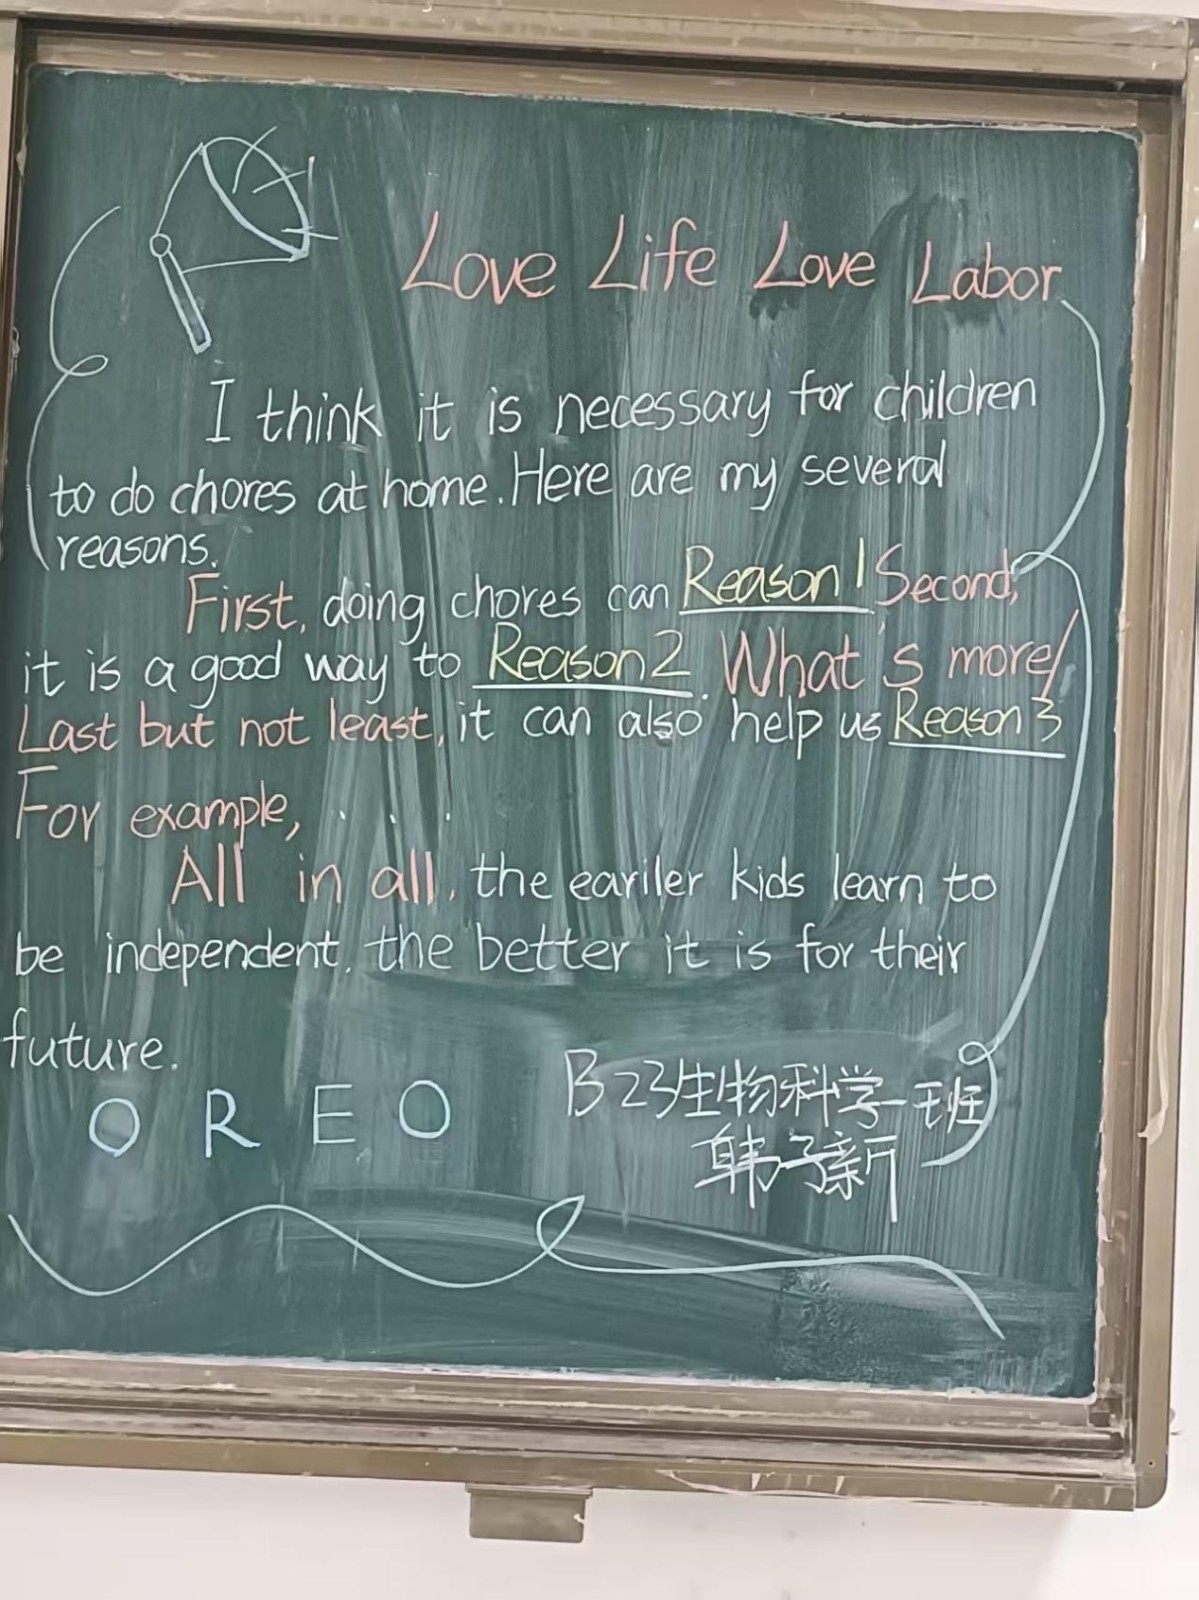 Love Life Love Labor
I think it is necessary for children
to do chores at home. Here are my several
reasons.
First, doing chores can Reason 1 Second,
it is a good way to Reason 2. What's more/
Last but not least, it can also help us Reason 3
For example, . . .
All in all, the eariler kids learn to
be independent, the better it is for their
future.
O R E O
B23生物科学一班
韩子新